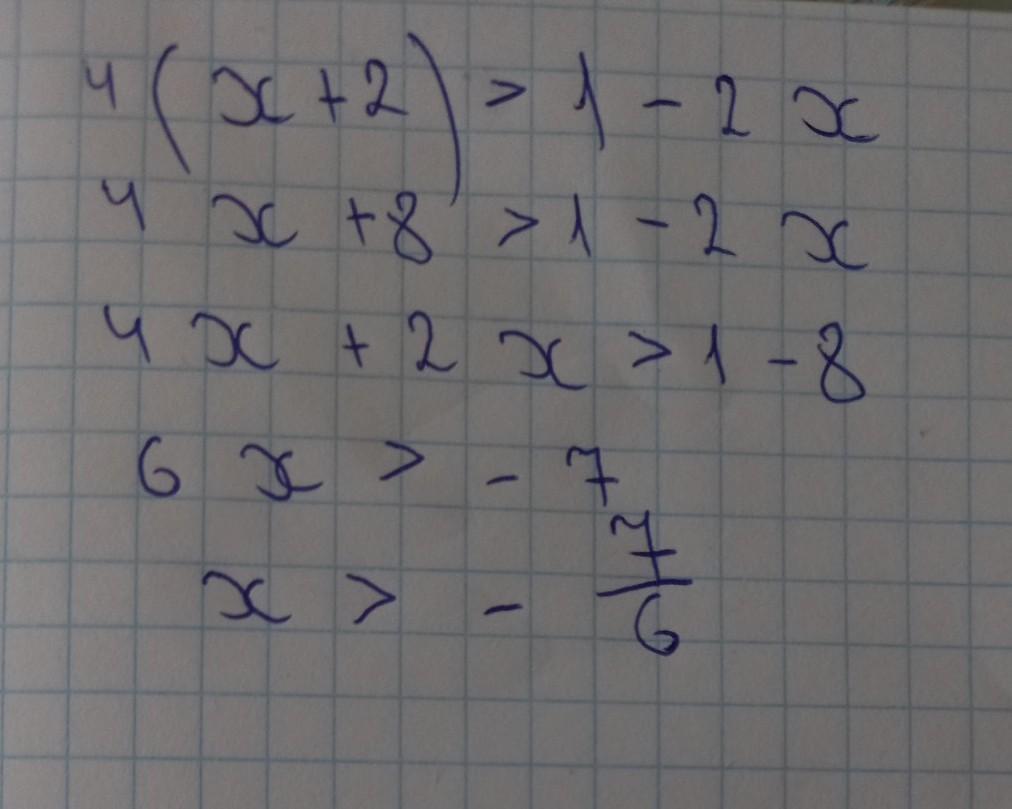 4(x+2) > 1 - 2x
4x + 8 > 1 - 2x
4x + 2x > 1 - 8
6x > - 7
x > - 7/6